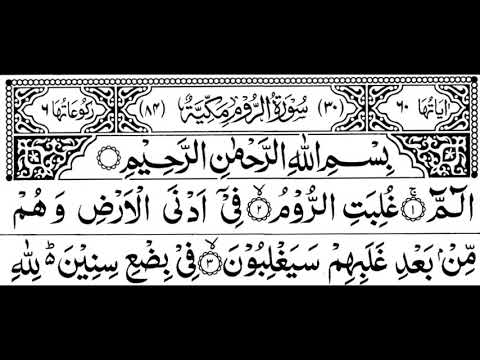 اٰیَاتُهَا ٦٠ (٣٠) سُوْرَةُ الرُّوْمِ مَكِّیَّةٌ (٨٤) رُكُوْعَاتُهَا ٦
بِسْمِ اللّٰهِ الرَّحْمٰنِ الرَّحِیْمِ ۝
الٓمّٓ ۚ﴿۱﴾ غُلِبَتِ الرُّوْمُ ۙ﴿۲﴾ فِیْۤ اَدْنَی الْاَرْضِ وَ هُمْ
مِّنْۢ بَعْدِ غَلَبِهِمْ سَیَغْلِبُوْنَ ۙ﴿۳﴾ فِیْ بِضْعِ سِنِیْنَ ؕ لِلّٰهِ